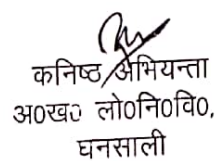 कनिष्ठ अभियन्ता
अ0ख0 लो०नि०वि०,
घनसाली